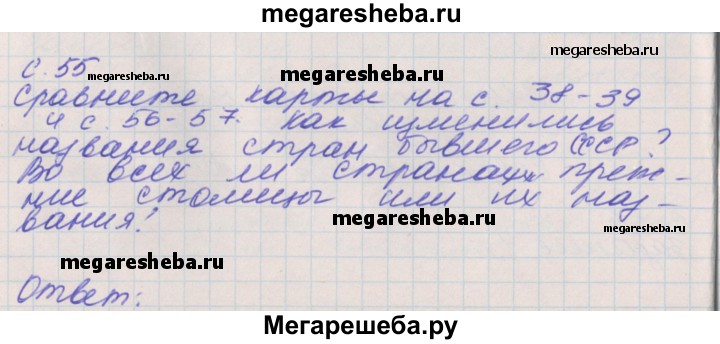 megaresheba.ru
megaresheba.ru
с. 55
megaresheba.ru
megaresheba.ru
Сравните карты на с. 38-39
и с 56-57. Как изменились
названия стран бывшего СССР?
Во всех ли странах преж-
ние столицы или их наз-
вания?
megaresheba.ru
megaresheba.ru
Ответ:
Мегарешеба.ру